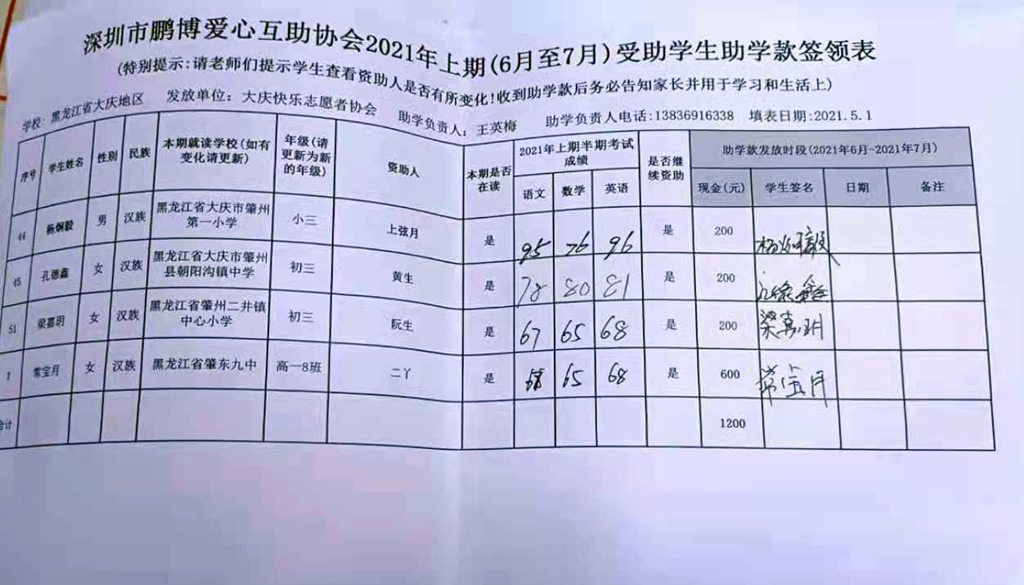 深圳市鹏博爱心互助协会2021年上期(6月至7月)受助学生助学款签领表
(特别提示:请老师们提示学生查看资助人是否有所变化!收到助学款后务必告知家长并用于学习和生活上)
学校: 黑龙江省大庆地区 发放单位: 大庆快乐志愿者协会 助学负责人: 王英梅 助学负责人电话:13836916338 填表日期:2021.5.1
序号 学生姓名 性别 民族 本期就读学校(如有变化请更新) 年级(请更新为新的年级) 资助人 本期是否在读 2021年上期半期考试成绩 是否继续资助 助学款发放时段(2021年6月-2021年7月)
语文 数学 英语 现金(元) 学生签名 日期 备注
44 杨炯毅 男 汉族 黑龙江省大庆市肇州第一小学 小三 上弦月 是 95 76 96 是 200
45 孔德鑫 女 汉族 黑龙江省大庆市肇州县朝阳沟镇中学 初三 黄生 是 78 80 81 是 200 孔德鑫
51 梁嘉玥 女 汉族 黑龙江省肇州二井镇中心小学 初三 阮生 是 67 65 68 是 200 梁嘉玥
7 常宝月 女 汉族 黑龙江省肇东九中 高一8班 二丫 是 65 68 是 600 常宝月
合计 1200